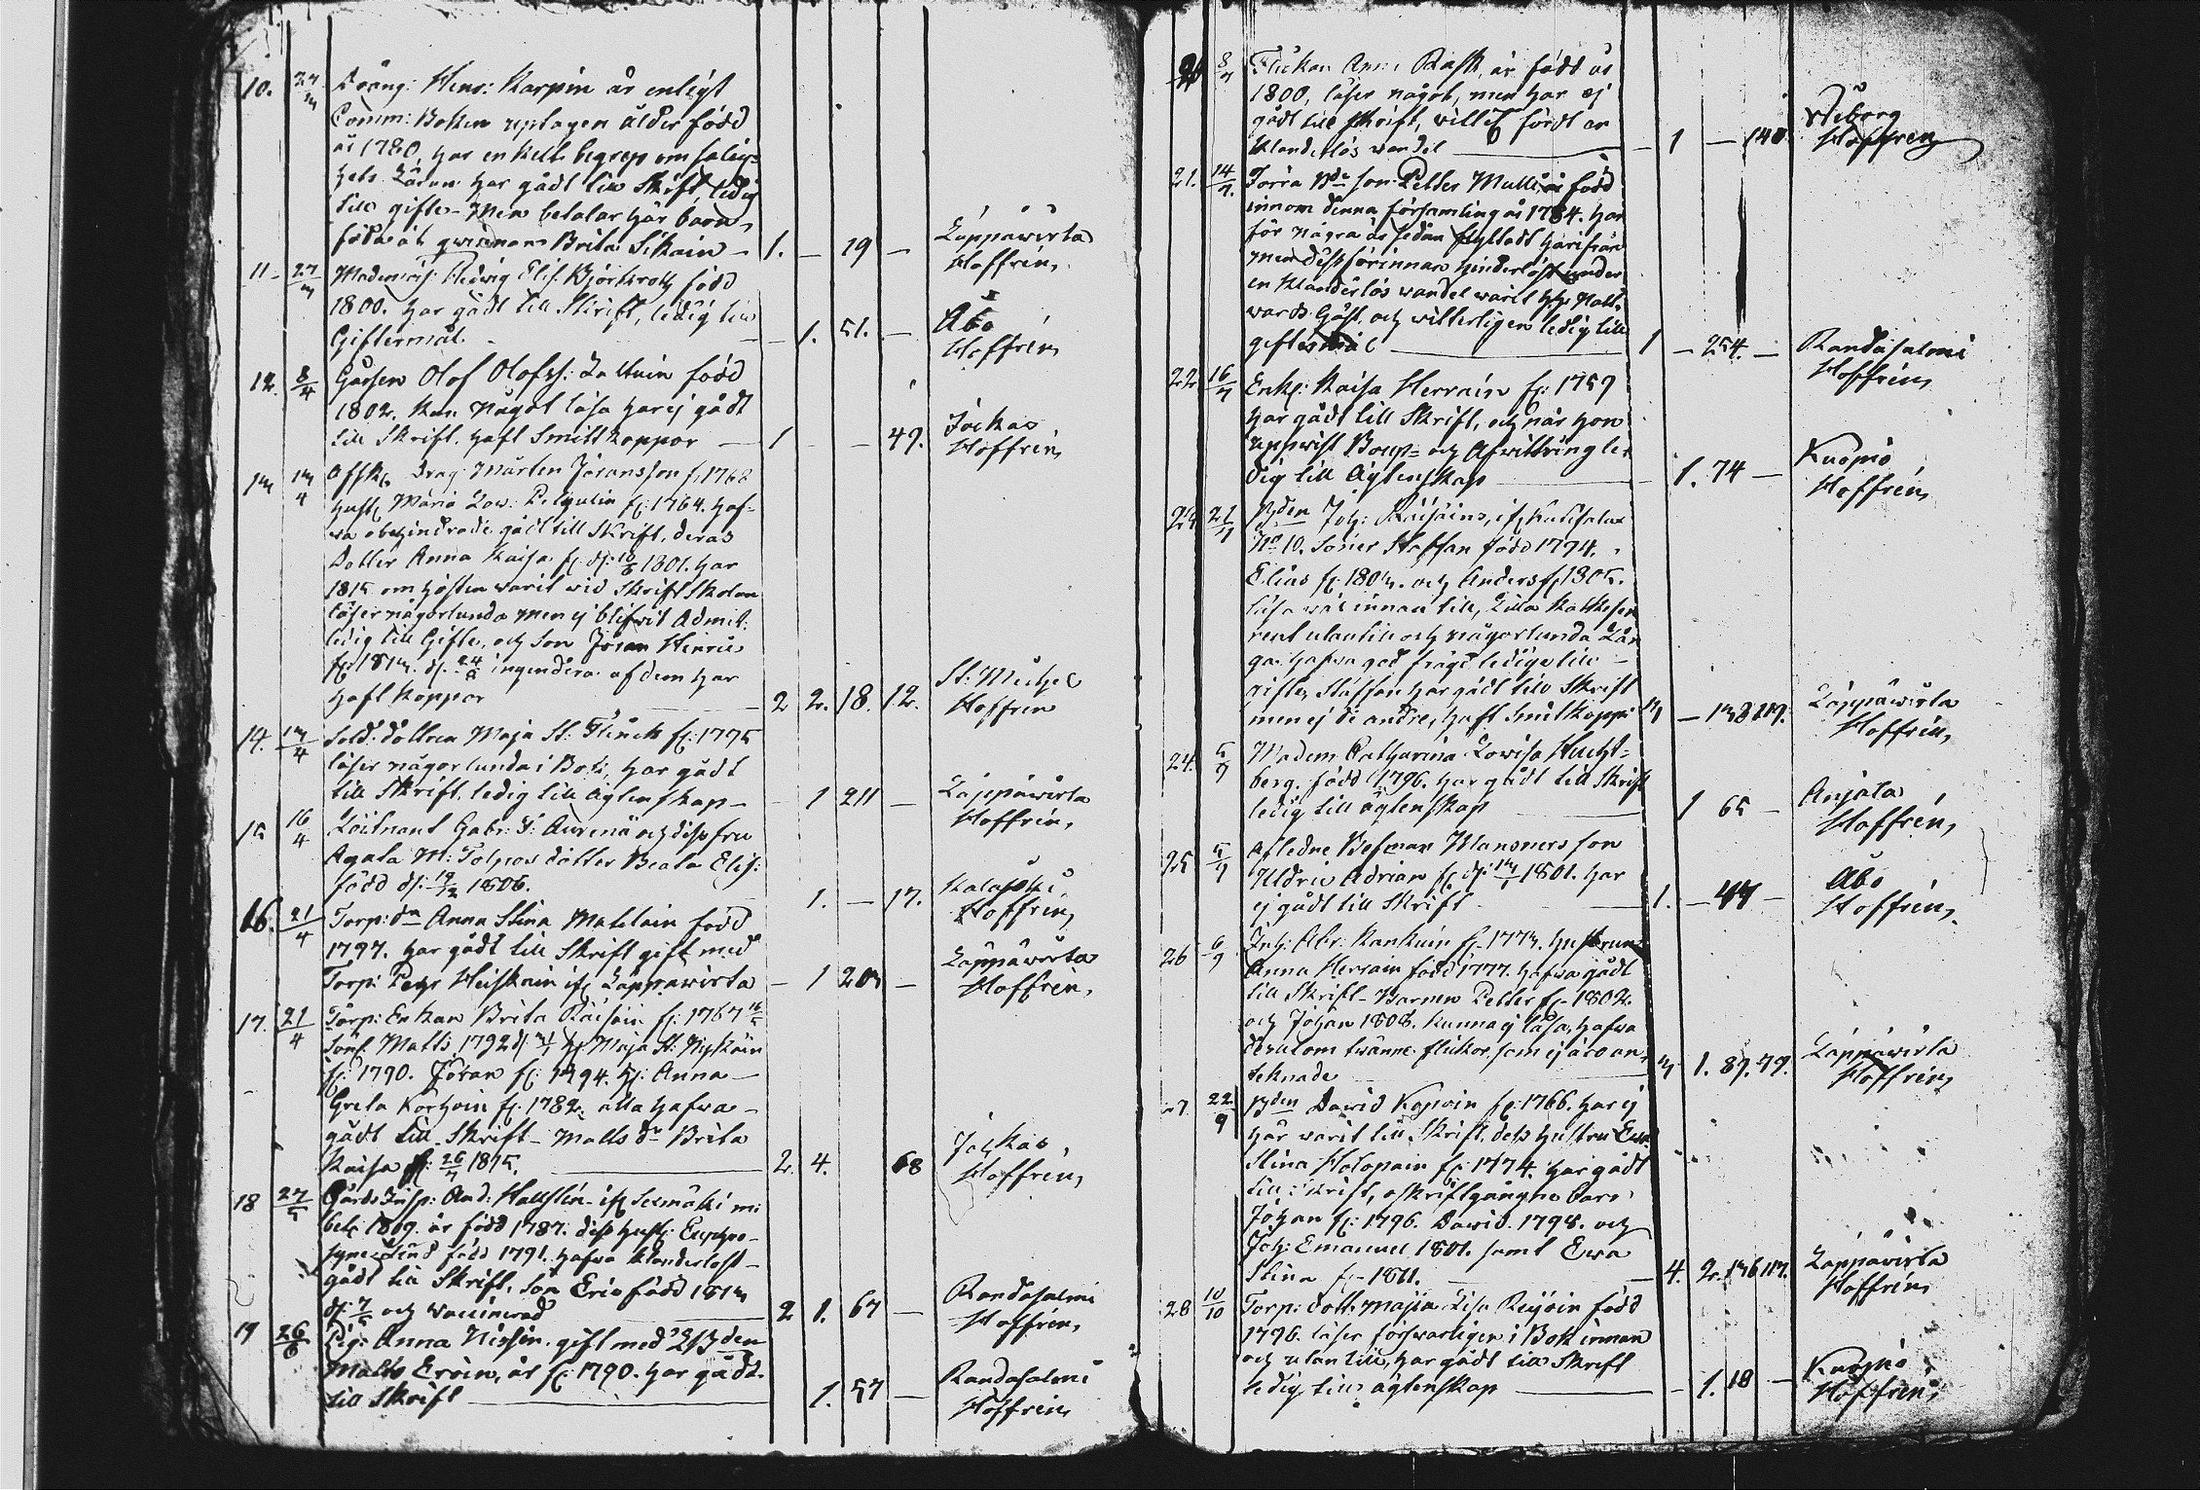 10. 27/3 Dräng: Henr: Karpin är enligt
Comm: Boken uptagen ålder född
år 1780, har enkelt begrep om salig=
hets Läran har gådt till Skrift ledig
till gifte - Men betalar här barn,
föda åt qwinnan Brita Sikain - 1. - 19 - Läppäwirta Hoffrén,
11 - 27/3 Mademois: Hedwig Elis. Björkroth född
1800. har gådt till Skrift, ledig till
Giftermål. - 1. 51. - Åbo Hoffrén
12. 8/4 Gossen Olof Olofss: född
1802. kan något läsa har ej gådt
till Skrift. haft Smittkoppor - 1 - - 49. Jockas Hoffrén
13 13/4 Afsk. Drag: Mårten Jöransson f. 1768
Hust. Maria Lov: f. 1764. haf-
wa obehindrade gådt till Skrift, deras
Dotter Anna Kaisa f. d. 1801. har
1815 om hösten warit wid Skrift Skolan
läser någorlunda men ej blifwit Admit:
ledig till Gifte, och Son Jöran Hinric
f. 1813. d. 24/8 ingendera af dem har
haft koppor 2 2. 18. 12. St: Michel Hoffrén
14. 13/4 Sold: dottren Maja St: Flinck f. 1795
läser någorlunda i Bok, har gådt
till Skrift. ledig till Äglenskap - - 1 211 - Läppäwirta Hoffrén,
15 16/4 Löitnant Gabr: och dess fru
Agata M: Tolpos dotter Beata Elis:
född d. 19/12 1806. 1. - 17. Kalajoki Hoffrén,
16. 21/4 Torp: dr Anna Stina Matilain född
1797. har gådt till Skrift gift med
Torp: Petr Heiskain if. Läppäwirta - 1 203 - Läppäwirta Hoffrén,
17. 21/4 Torp: Enkan Brita Räisäin f: 1767
Son Matts 1792 H: Maja St: Nykäin
f: 1790. Jöran f: 1794. H: Anna
Greta Korhoin f: 1782, alla hafwa -
gådt till Skrift - Matts dr Brita
Kaisa f: 26/7 1815. 2. 4. 68 Jockas Hoffrén,
18 27/5 Gårds Insp: And: Hallstén if.
1809. är född 1787. dess Hust: Euphro-
syne Lind född 1791. hafva klanderlöst -
gådt till Skrift, Son Eric född 1813
d. och waccinerad 2 1. 67 - Randasalmi Hoffrén,
19 26/6 Pig: Anna Nissin gift med Bden
Matts Eroin, är f: 1790. har gådt
till Skrift 1. 57 - Randasalmi Hoffrén
20 8/7 Flickan Anna Rask, är född år
1800, läser något, men har ej
gådt till Skrift, fördt en
klanderlös wandel - 1 - 140. Wiborg Hoffrén
21. 14/7. Torra Bde son Petter Mulli är född
innom denna församling år 1784. har
för några år sedan flyttadt härifrån
men dessförinnan hinderlöst under
en klanderlös wandel warit H.H. Natt-
wards Gäst, och witterligen ledig till
giftermål 1 - 254. - Randasalmi Hoffrén,
22 16/7 Enk: Kaisa Herrain f: 1759
har gådt till Skrift, och när hon
uppwist Boup= och Afwittring le-
dig till Äglenskap 1. 74 - Kuopio Hoffrén,
23 21/7 Bden Joh: Räisäins, if.
No 10. Söner Staffan född 1794.
Elias f: 1803. och Anders f. 1805.
läsa wäl innan till, Lilla Katkesen
rent utantill och någorlunda Lån
ga. hafwa god frägd ledige till -
gifte, Staffan har gådt till Skrift
men ej de andre, haft Smitkoppr 3 - 138 217. Läppäwirta Hoffrén,
24. 5/9 Madem Catharina Lowisa
berg. född 1796. har gådt till Skrift
ledig till äglenskap 1 65 - Anjala Hoffrén,
25 5/9 Afledne Befman Mansners son
Uldric Adrian f. d. 1801. har
ej gådt till Skrift 1. - 44 - Åbo Hoffrén,
26 6/9 Inh: Abr: Kankuin f. 1773. hustrun
Anna Herrain född 1777. hafwa gådt
till Skrift - Barnen Petter f. 1802
och Johan 1808. kunna ej läsa, hafwa
desutom twänne flickor som ej äro an-
teknade 3 1. 89. 79. Läppäwirta Hoffrén,
27. 22/9 Bden Dawid Kopoin f: 1766. har ej
här warit till Skrift, dess hustru Ewa
Stina Holopain f: 1774. har gådt
till Skrift, oskriftgångne barn
Johan f: 1796. Dawid. 1798. och
Joh: Emanuel 1801. samt Ewa
Stina f. 1811. 4. 2. 136 117. Läppäwirta Hoffrén
28 10/10 Torp: dott: Majia Lisa född
1796. läser försvarligen i Bok innan
och utantill, har gådt till Skrift
ledig till äglenskap - 1. 18 - Kuopio Hoffrén,